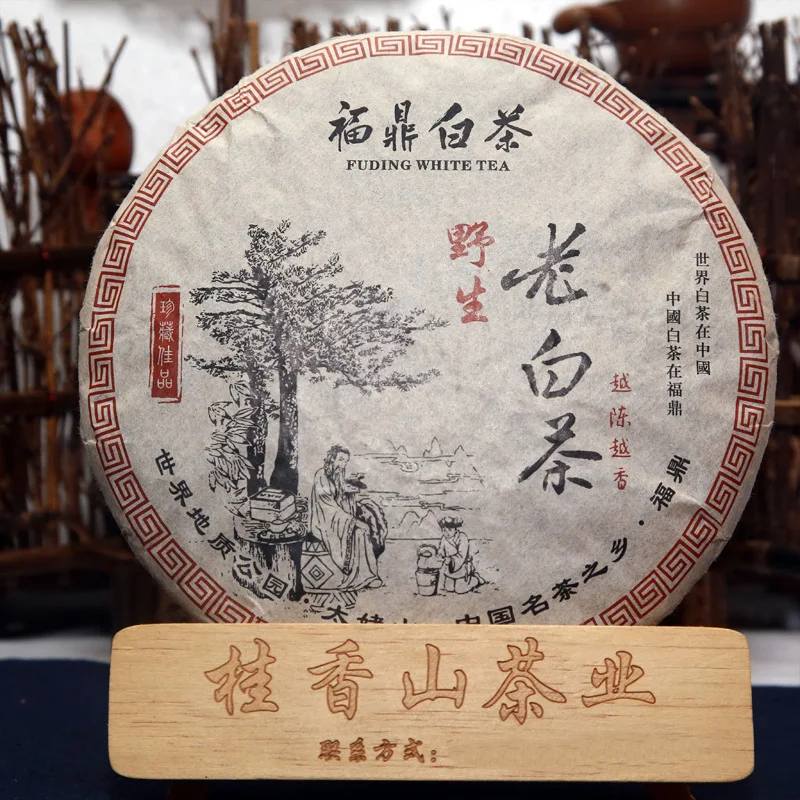 福鼎白茶
FUDING WHITE TEA
世界白茶在中國
中國白茶在福鼎
野生
老白茶
越陈越香
珍藏佳品
世界地质公园·太姥山 中国名茶之乡·福鼎
桂香山茶业
联系方式: